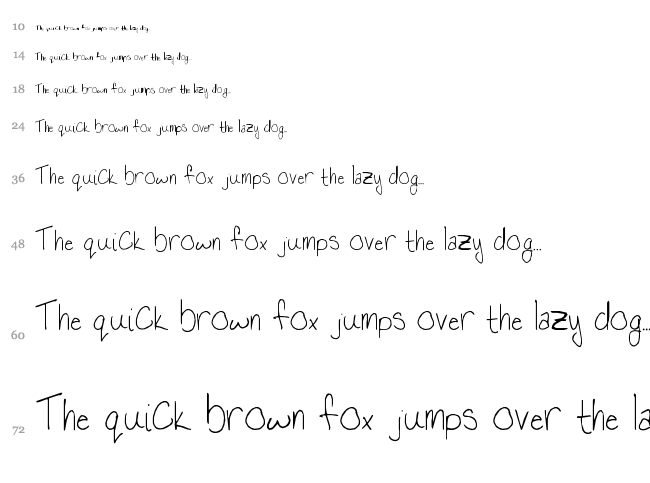 10 The quick brown fox jumps over the lazy dog...
14 The quick brown fox jumps over the lazy dog...
18 The quick brown fox jumps over the lazy dog...
24 The quick brown fox jumps over the lazy dog...
36 The quick brown fox jumps over the lazy dog...
48 The quick brown fox jumps over the lazy dog...
60 The quick brown fox jumps over the lazy dog...
72 The quick brown fox jumps over the la